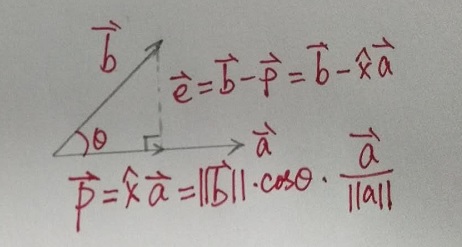 b⃗
e⃗ = b⃗ - p⃗ = b⃗ - x̂a⃗
θ
a⃗
p⃗ = x̂a⃗ = ||b⃗||·cosθ · a⃗/||a||